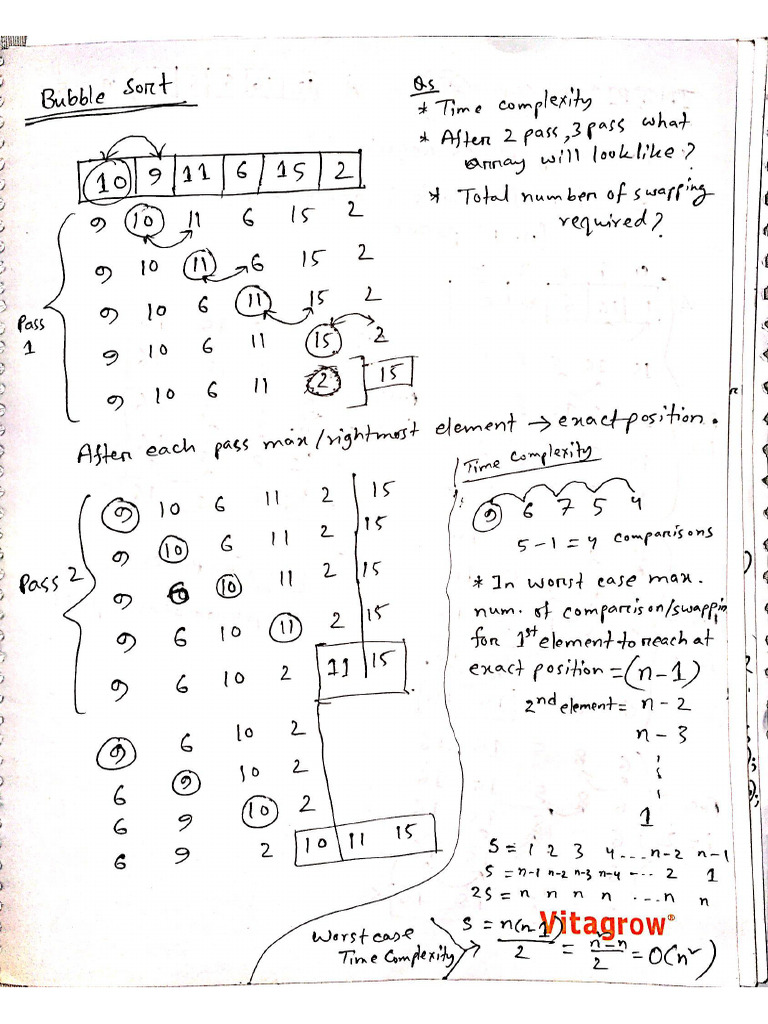 Bubble Sort
10 9 11 6 15 2
9 10 11 6 15 2
9 10 11 6 15 2
9 10 6 11 15 2
9 10 6 11 15 2
9 10 6 11 2 15
Pass 1
Qs
* Time complexity
* After 2 pass, 3 pass what
array will look like?
* Total number of swapping
required?
After each pass max/rightmost element → exact position.
Pass 2
9 10 6 11 2 15
9 10 6 11 2 15
9 6 10 11 2 15
9 6 10 11 2 15
9 6 10 2 11 15
9 6 10 2
6 9 10 2
6 9 10 2
6 9 2 10 11 15
Time complexity
9 6 7 5 4
5-1 = 4 comparisons
* In worst case max.
num. of comparison/swappin
for 1st element to reach at
exact position = (n-1)
2nd element = n-2
n-3
1
S = 1 2 3 4 .... n-2 n-1
S = n-1 n-2 n-3 n-4 --- 2 1
2S = n n n n ....n n
Worst case
Time Complexity
S = n(n-1)/2 = n²-n/2 = O(n²)
Vitagrow®